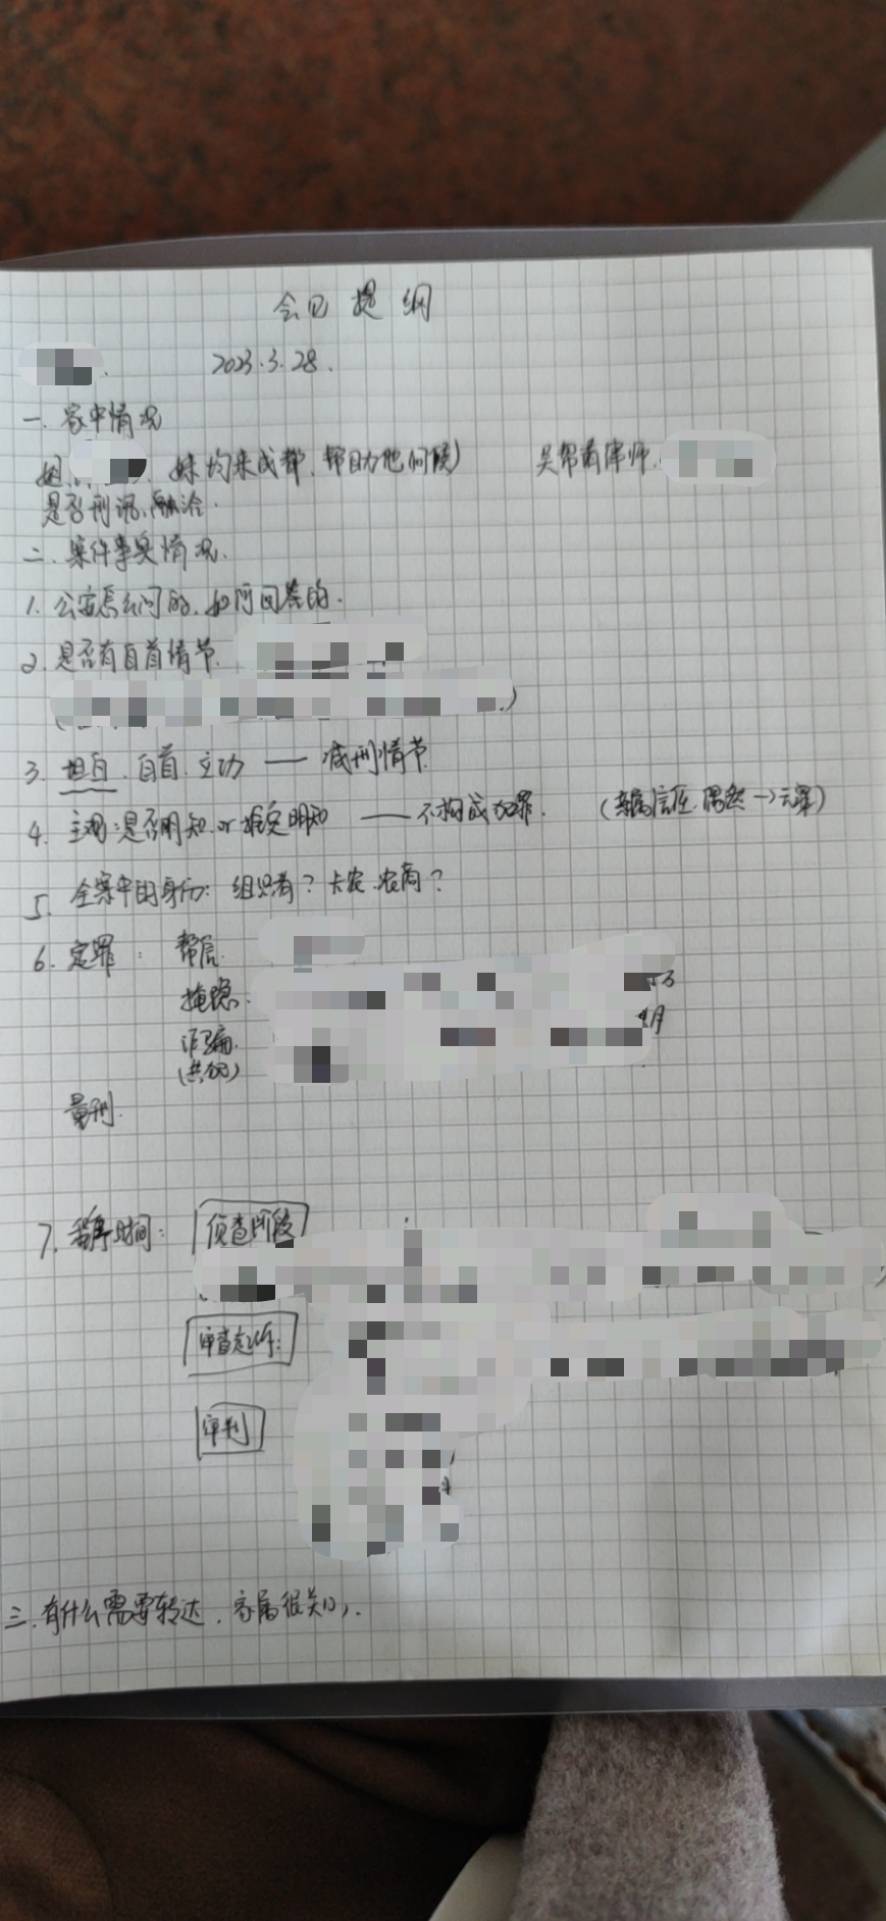 会见提纲
2023.3.28.
一.家中情况
姐 妹均来成都.帮助他(问候) 律师.
是否刑讯.
二.案件事实情况.
1.公安怎么问的.如何回答的.
2.是否有自首情节.
3.坦白.自首.立功——减刑情节
4.主观:是否明知or推定明知——不构成犯罪. (亲属信任.偶然→无罪)
5.全案中的身份:组织者?卡农.农商?
6.定罪: 帮信.
掩隐. 5万
诈骗. 4月
(共犯)
量刑.
7.程序时间: 侦查阶段
审查起诉:
审判
三.有什么需要转达.家属很关心.